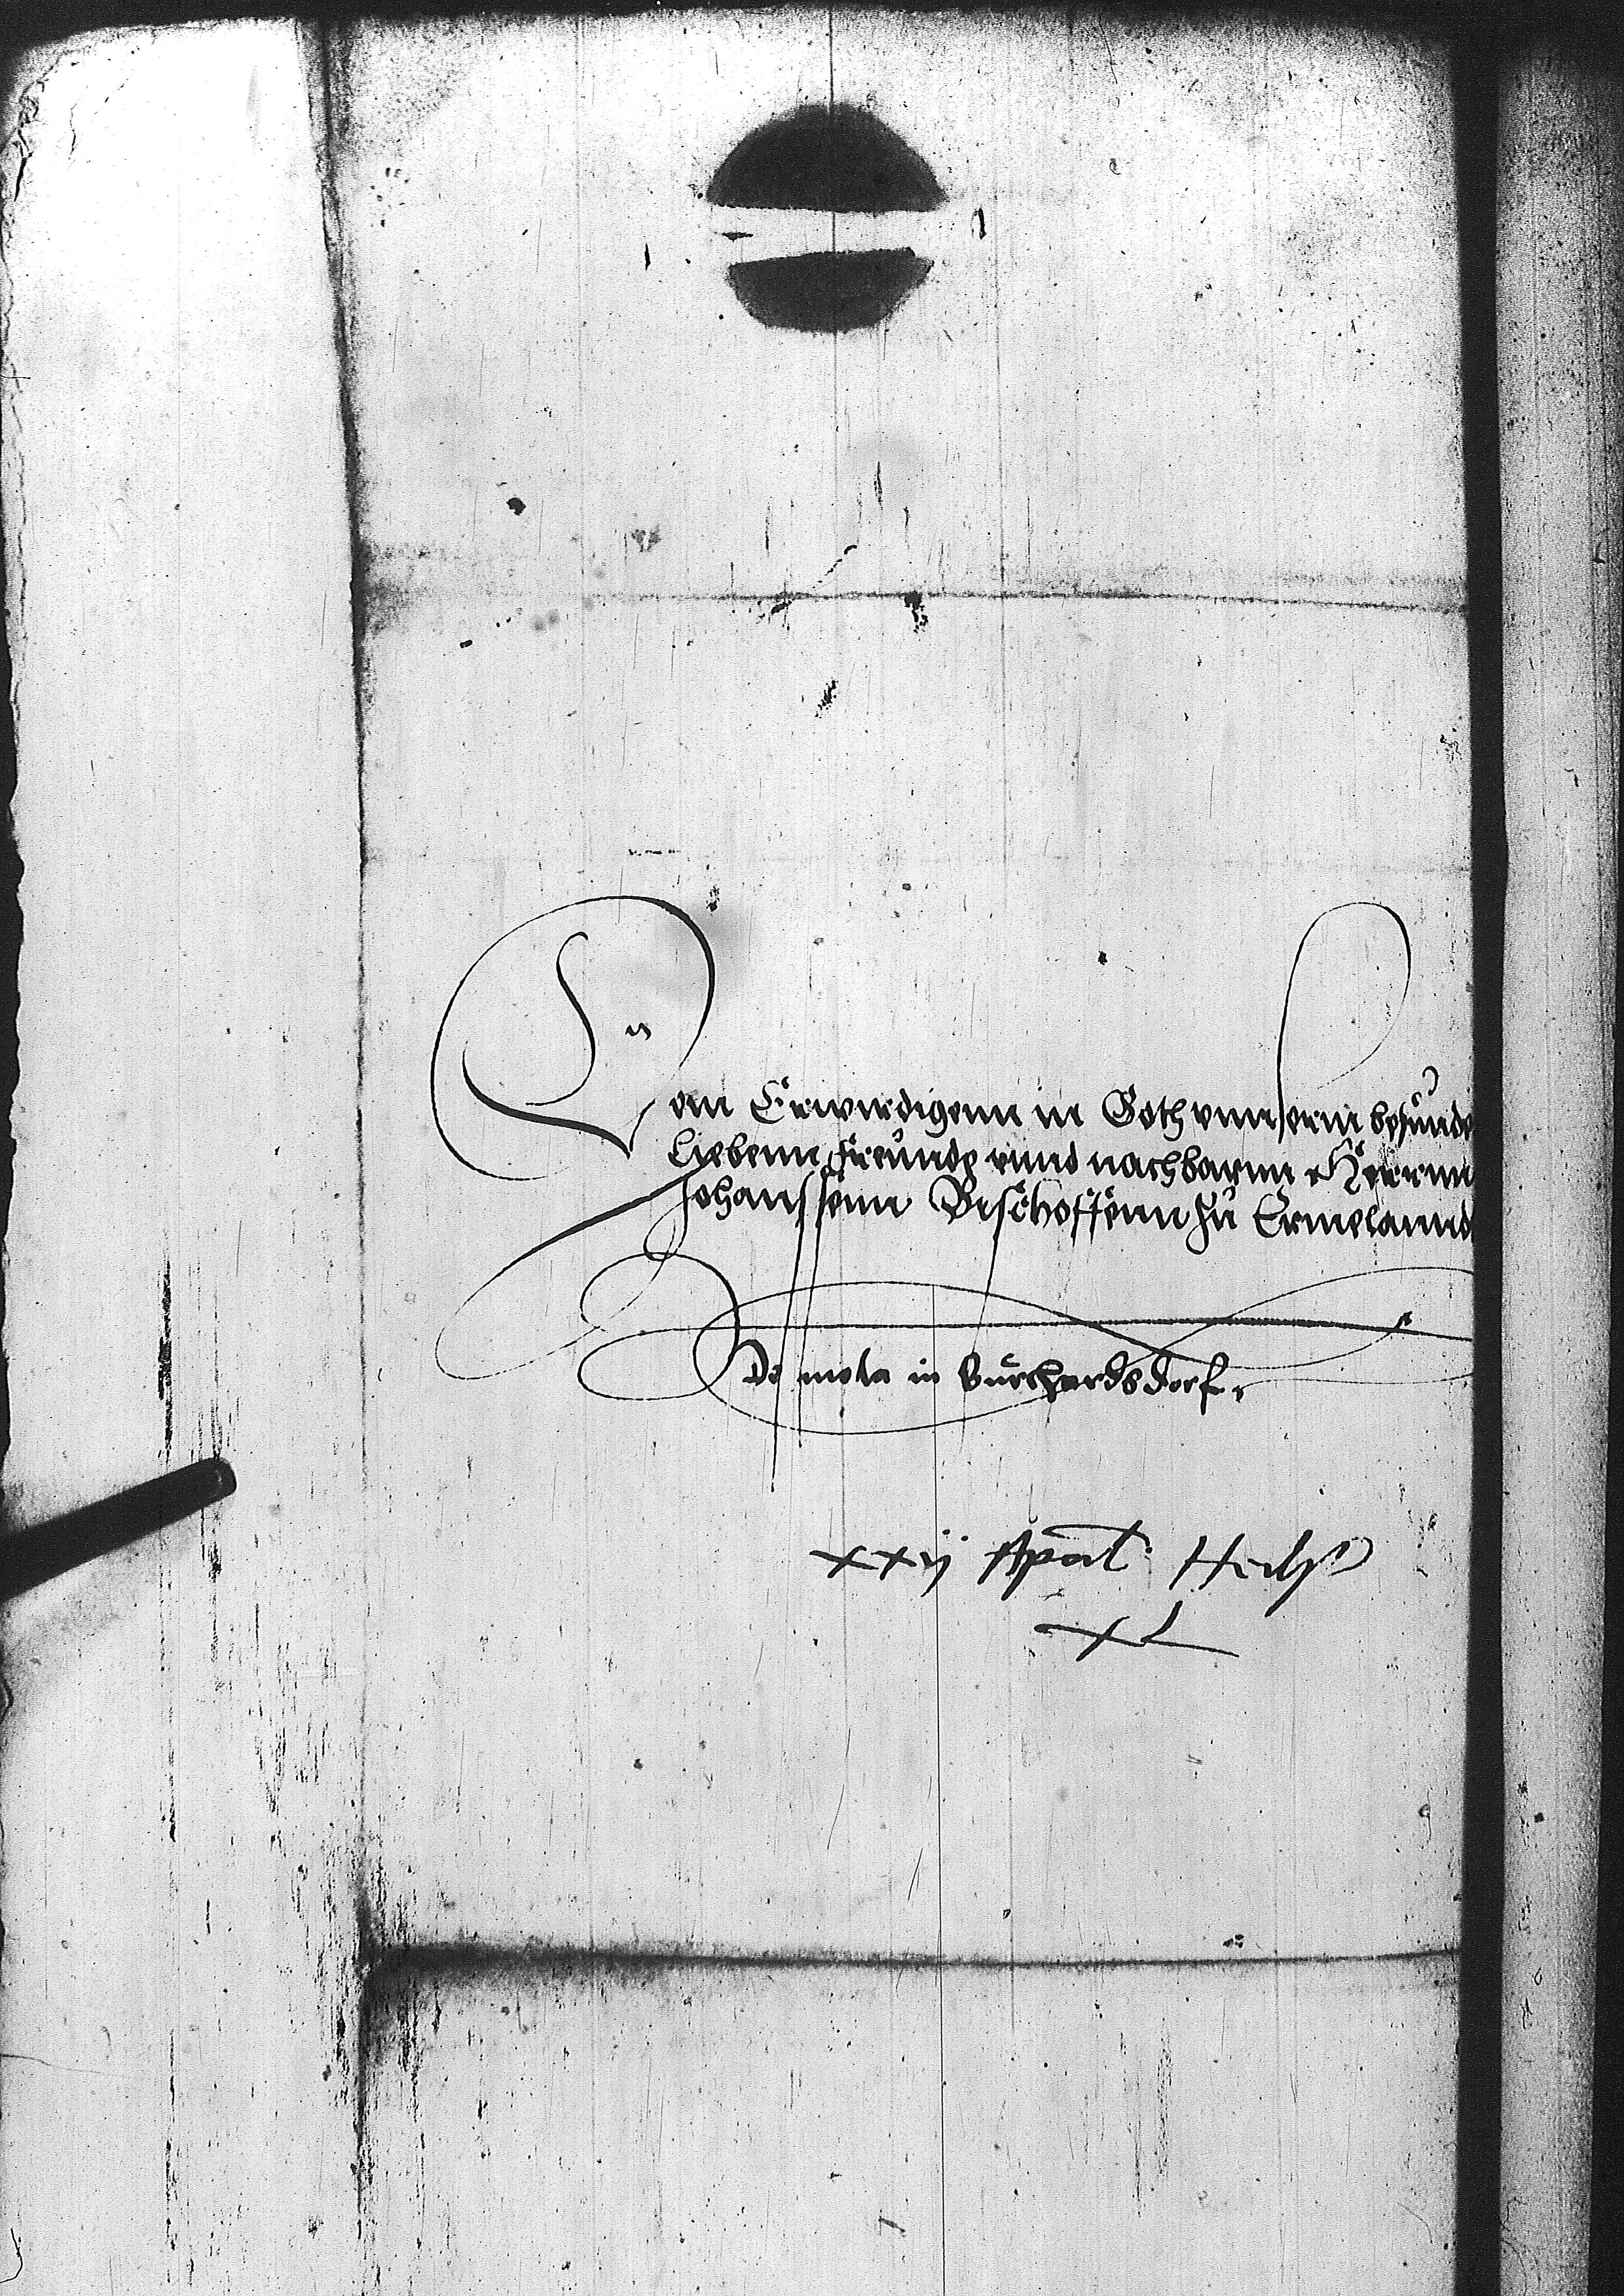 Dem Erwirdigenn in Goth vnnserm besunde
Liebenn Freundt vnnd nachbarnn Herrnn
Johanssenn Bischoffenn zu Ermelannd
De mola in Burchardsdorf.
xxij April Heilsp
xL